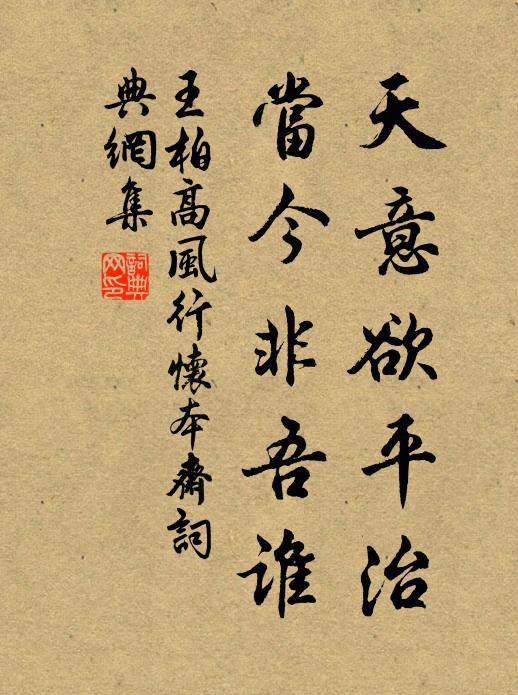 天意欲平治
當今非吾誰
王柏高風行懷本齋詞
典網集
詞典
网印